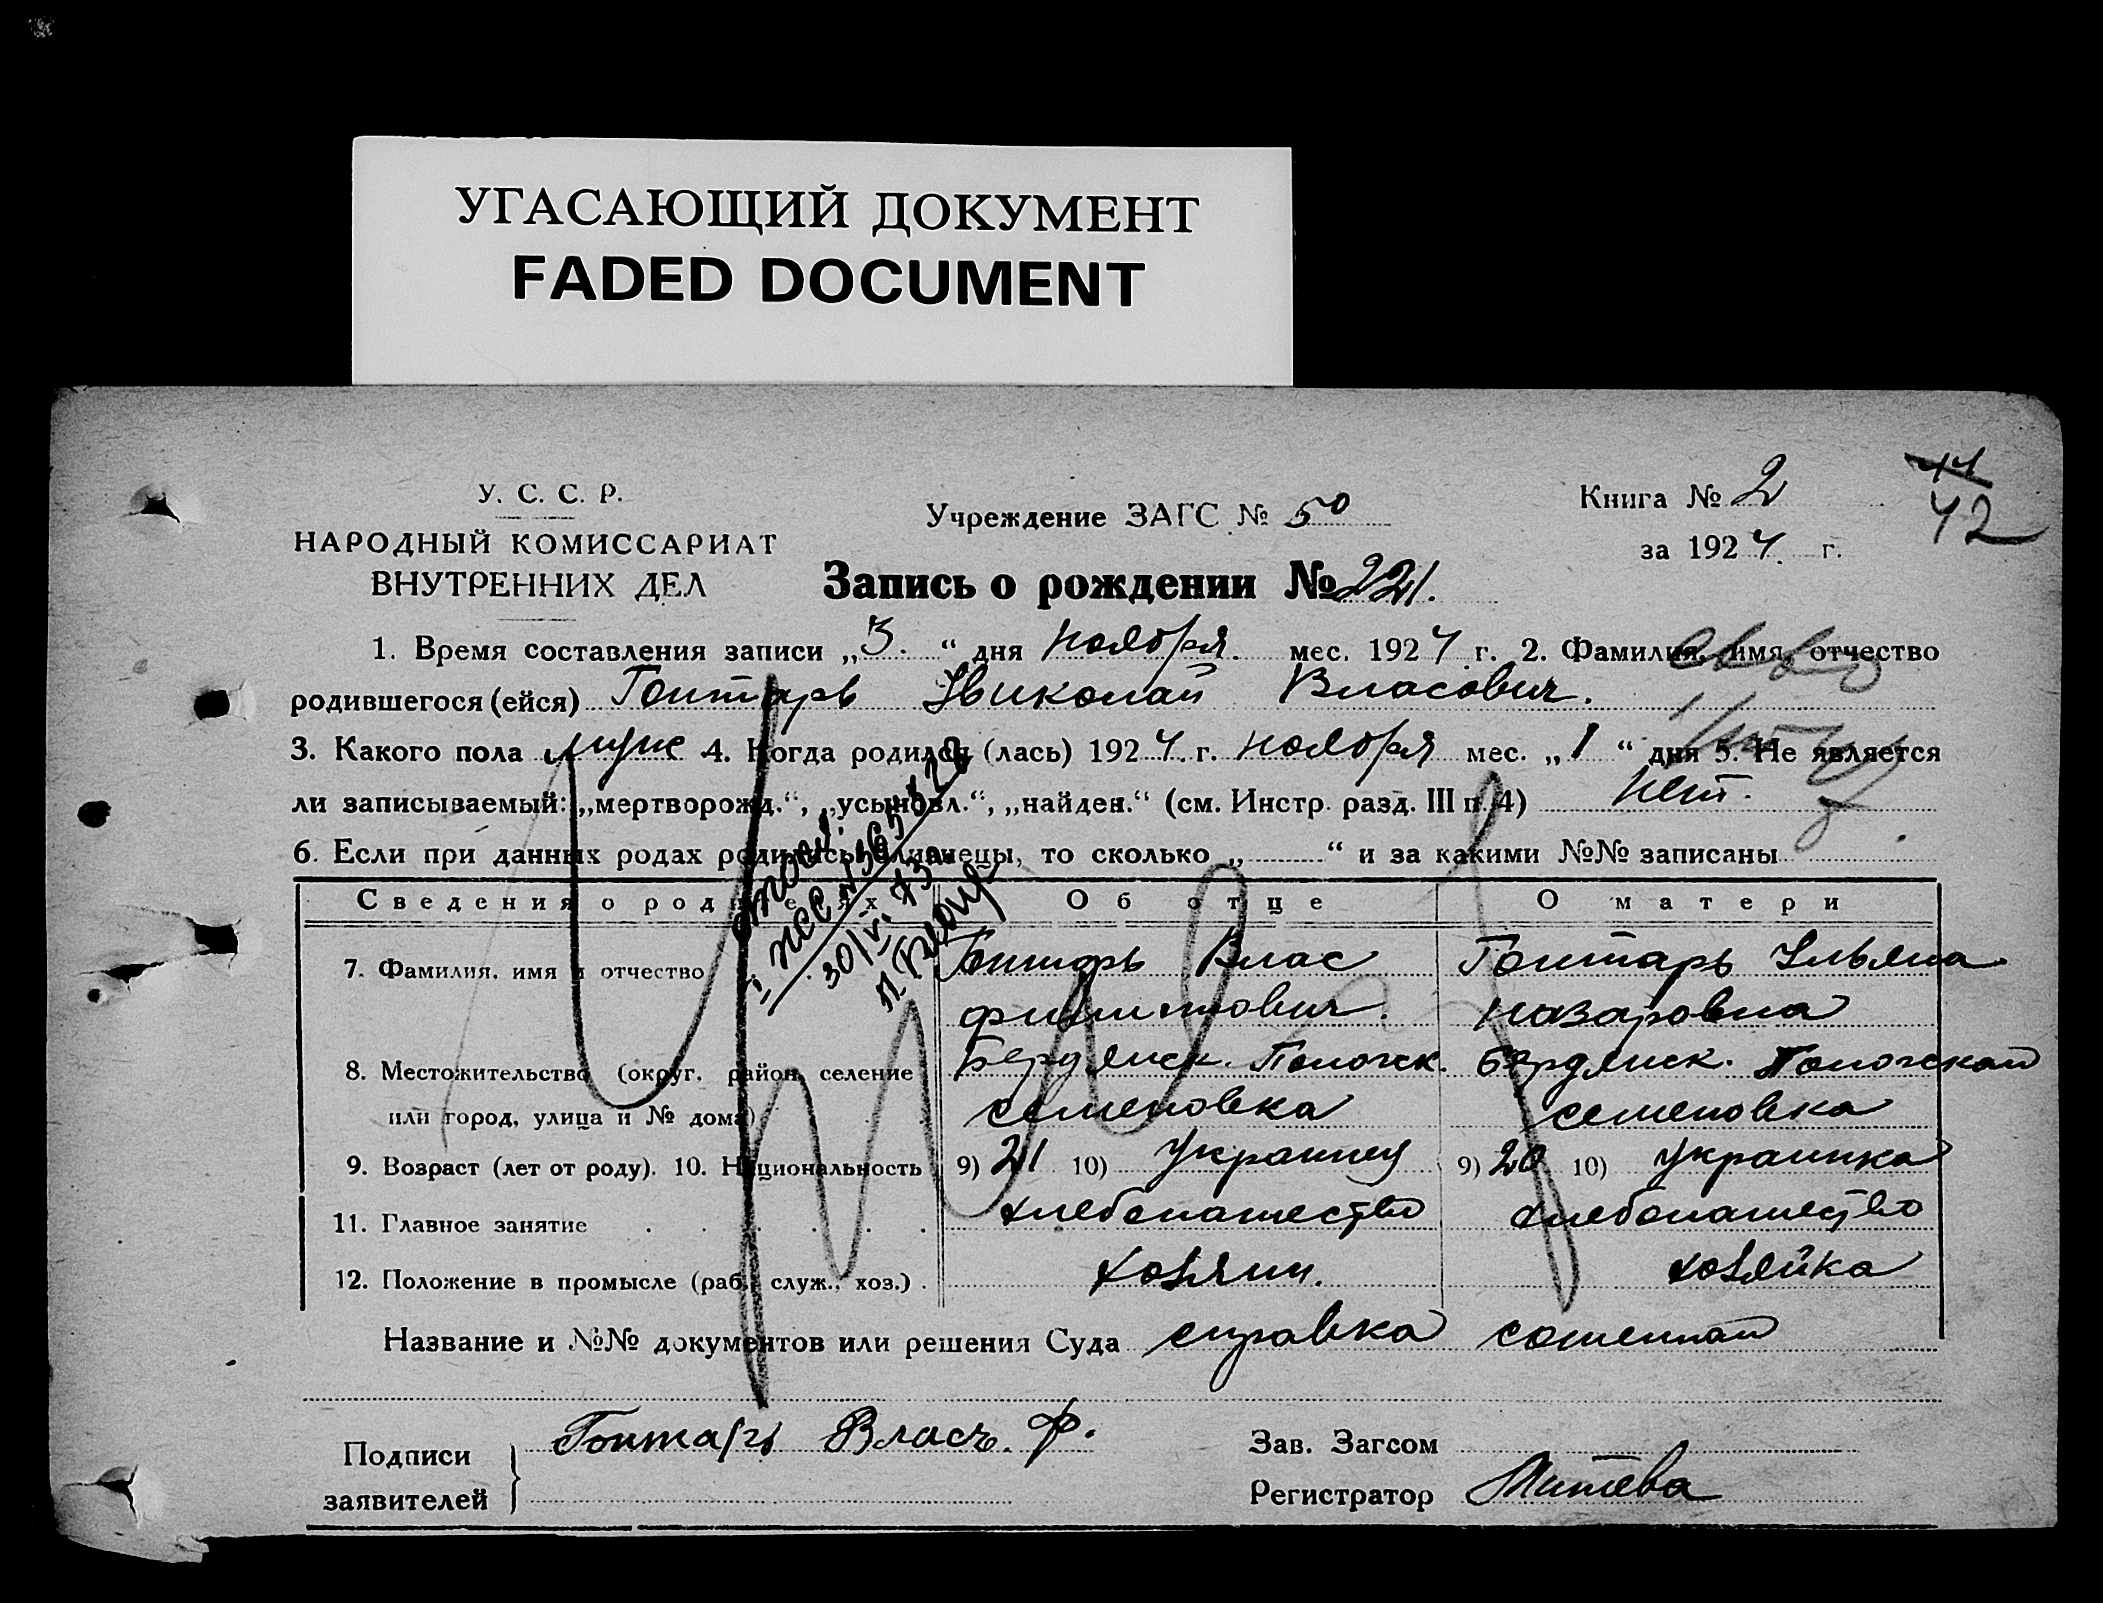 УГАСАЮЩИЙ ДОКУМЕНТ
FADED DOCUMENT
У. С. С. Р.
НАРОДНЫЙ КОМИССАРИАТ
ВНУТРЕННИХ ДЕЛ
Учреждение ЗАГС № 50
Книга № 2
за 1924 г.
42
Запись о рождении № 221.
1. Время составления записи „3.“ дня ноября. мес. 1924 г. 2. Фамилия, имя, отчество
родившегося (ейся) Гонтарь Николай Власович.
3. Какого пола муж 4. Когда родился (лась) 1924 г. ноября мес. „1“ дня 5. Не является
ли записываемый: „мертворожд.“, „усыновл.“, „найден.“ (см. Инстр. разд. III п. 4) нет.
6. Если при данных родах родились близнецы, то сколько „ “ и за какими №№ записаны
Сведения о родителях Об отце О матери
7. Фамилия, имя и отчество Гонтарь Влас Гонтарь Ульяна
Филиппович. Назаровна
8. Местожительство (округ, район, селение Бердянск. Пологск. Бердянск. Пологский
или город, улица и № дома) Семеновка Семеновка
9. Возраст (лет от роду). 10. Национальность 9) 21 10) Украинец 9) 20 10) Украинка
11. Главное занятие хлебопашество хлебопашество
12. Положение в промысле (раб., служ., хоз.) хозяин. хозяйка
Название и №№ документов или решения Суда справка
Подписи
заявителей
Гонтарь Власъ. Ф.
Зав. Загсом
Регистратор